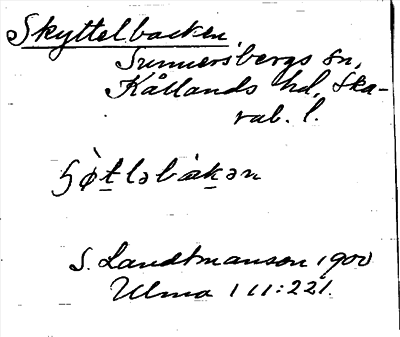 Skyttelbacken.
Sunnersbergs sn,
Kållands hd, Ska-
rab. l.
ʃø̀t̲ləbàk̲ən
S. Landtmanson 1900
Ulma 111:221.